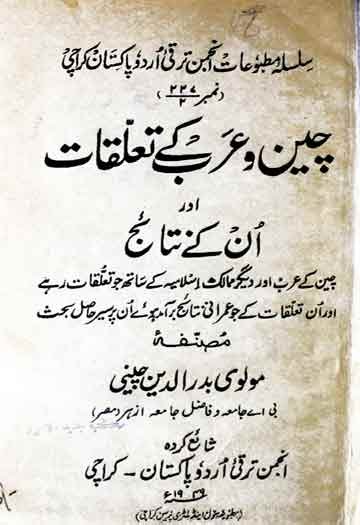 سلسلہ مطبوعات انجمن ترقی اُردو پاکستان کراچی
(نمبر ۲۲۷/۲)
چین و عرَب کے تعلّقات
اور
اُن کے نتائج
چین کے عرب اور دیگر ممالک اسلامیہ کے ساتھ جو تعلّقات رہے
اور ان تعلقات کے جو عمرانی نتائج برآمد ہوئے اُن پر سیر حاصل بحث
مصنفۂ
مولوی بدر الدین چینی
بی اے جامعہ و فاضل جامعہ ازہر (مصر)
شائع کردہ
انجمن ترقی اُردو پاکستان - کراچی
۱۹۴۹ء